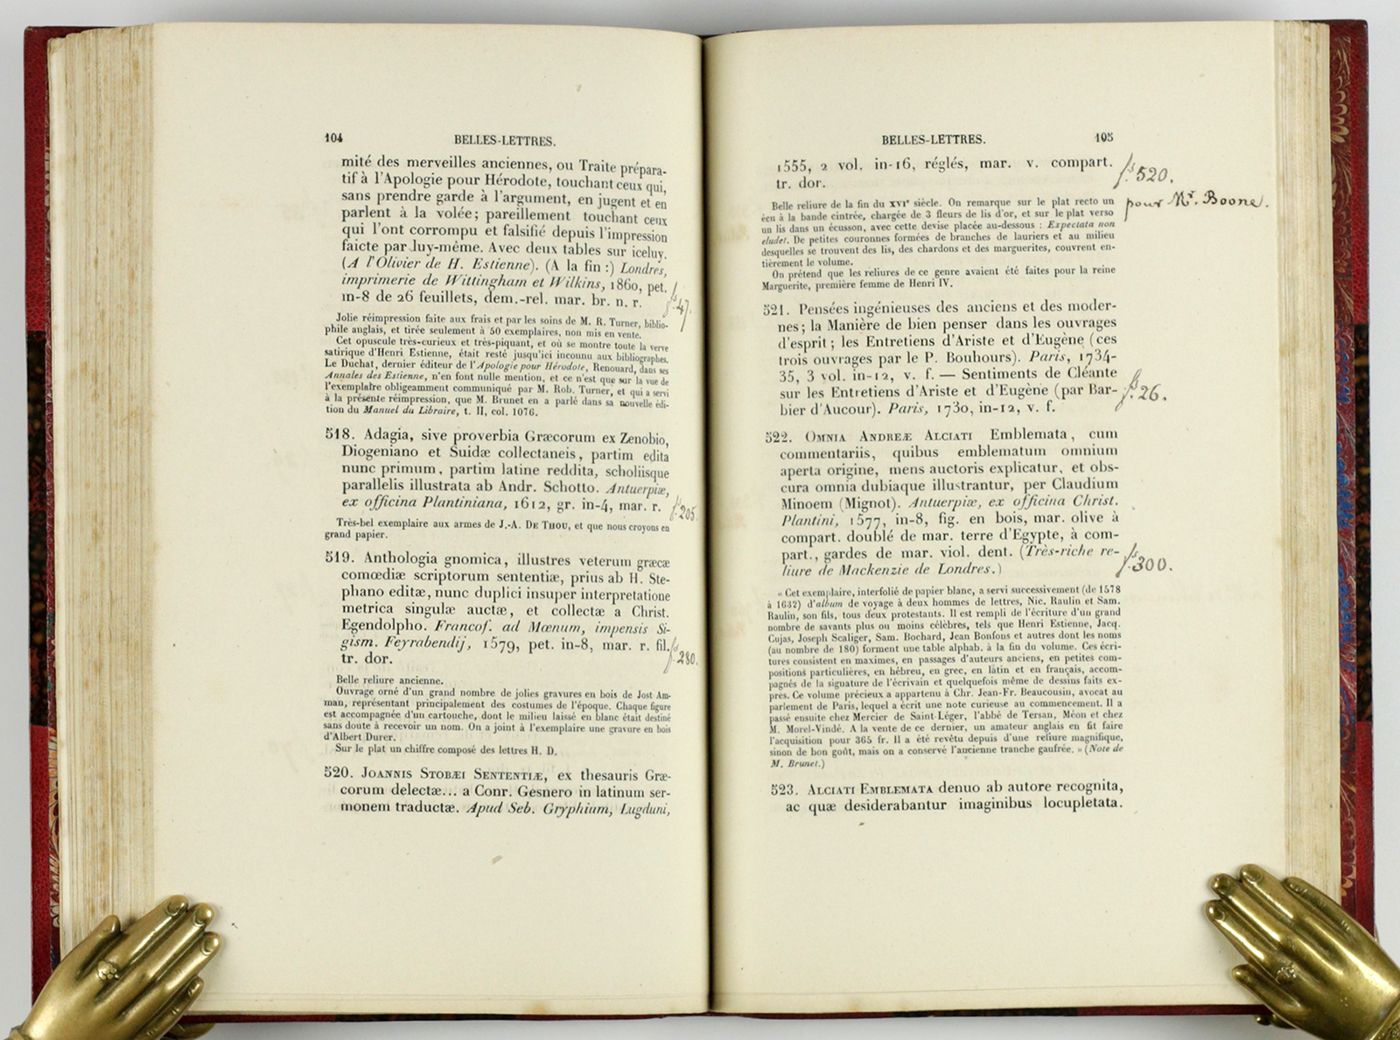 104
BELLES-LETTRES.
mité des merveilles anciennes, ou Traite prépara-
tif à l'Apologie pour Hérodote, touchant ceux qui,
sans prendre garde à l'argument, en jugent et en
parlent à la volée; pareillement touchant ceux
qui l'ont corrompu et falsifié depuis l'impression
faicte par luy-même. Avec deux tables sur iceluy.
(A l'Olivier de H. Estienne). (A la fin :) Londres,
imprimerie de Wittingham et Wilkins, 1860, pet.
in-8 de 26 feuillets, dem.-rel. mar. br. n. r.
fs 47.
Jolie réimpression faite aux frais et par les soins de M. R. Turner, biblio-
phile anglais, et tirée seulement à 50 exemplaires, non mis en vente.
Cet opuscule très-curieux et très-piquant, et où se montre toute la verve
satirique d'Henri Estienne, était resté jusqu'ici inconnu aux bibliographes.
Le Duchat, dernier éditeur de l'Apologie pour Hérodote, Renouard, dans ses
Annales des Estienne, n'en font nulle mention, et ce n'est que sur la vue de
l'exemplaire obligeamment communiqué par M. Rob. Turner, et qui a servi
à la présente réimpression, que M. Brunet en a parlé dans sa nouvelle édi-
tion du Manuel du Libraire, t. II, col. 1076.
518. Adagia, sive proverbia Græcorum ex Zenobio,
Diogeniano et Suidæ collectaneis, partim edita
nunc primum, partim latine reddita, scholiisque
parallelis illustrata ab Andr. Schotto. Antuerpiæ,
ex officina Plantiniana, 1612, gr. in-4, mar. r.
fs 205.
Très-bel exemplaire aux armes de J.-A. DE THOU, et que nous croyons en
grand papier.
519. Anthologia gnomica, illustres veterum græcæ
comœdiæ scriptorum sententiæ, prius ab H. Ste-
phano editæ, nunc duplici insuper interpretatione
metrica singulæ auctæ, et collectæ a Christ.
Egendolpho. Francof. ad Mœnum, impensis Si-
gism. Feyrabendij, 1579, pet. in-8, mar. r. fil.
tr. dor.
fs 280.
Belle reliure ancienne.
Ouvrage orné d'un grand nombre de jolies gravures en bois de Jost Am-
man, représentant principalement des costumes de l'époque. Chaque figure
est accompagnée d'un cartouche, dont le milieu laissé en blanc était destiné
sans doute à recevoir un nom. On a joint à l'exemplaire une gravure en bois
d'Albert Durer.
Sur le plat un chiffre composé des lettres H. D.
520. JOANNIS STOBÆI SENTENTIÆ, ex thesauris Græ-
corum delectæ... a Conr. Gesnero in latinum ser-
monem traductæ. Apud Seb. Gryphium, Lugduni,
BELLES-LETTRES.
105
1555, 2 vol. in-16, réglés, mar. v. compart.
tr. dor.
fs 520.
pour Mr. Boone.
Belle reliure de la fin du XVIe siècle. On remarque sur le plat recto un
écu à la bande cintrée, chargée de 3 fleurs de lis d'or, et sur le plat verso
un lis dans un écusson, avec cette devise placée au-dessous : Expectata non
eludet. De petites couronnes formées de branches de lauriers et au milieu
desquelles se trouvent des lis, des chardons et des marguerites, couvrent en-
tièrement le volume.
On prétend que les reliures de ce genre avaient été faites pour la reine
Marguerite, première femme de Henri IV.
521. Pensées ingénieuses des anciens et des moder-
nes; la Manière de bien penser dans les ouvrages
d'esprit; les Entretiens d'Ariste et d'Eugène (ces
trois ouvrages par le P. Bouhours). Paris, 1734-
35, 3 vol. in-12, v. f. — Sentiments de Cléante
sur les Entretiens d'Ariste et d'Eugène (par Bar-
bier d'Aucour). Paris, 1730, in-12, v. f.
fs 26.
522. OMNIA ANDREÆ ALCIATI Emblemata, cum
commentariis, quibus emblematum omnium
aperta origine, mens auctoris explicatur, et obs-
cura omnia dubiaque illustrantur, per Claudium
Minoem (Mignot). Antuerpiæ, ex officina Christ.
Plantini, 1577, in-8, fig. en bois, mar. olive à
compart. doublé de mar. terre d'Egypte, à com-
part., gardes de mar. viol. dent. (Très-riche re-
liure de Mackenzie de Londres.)
fs 300.
« Cet exemplaire, interfolié de papier blanc, a servi successivement (de 1578
à 1632) d'album de voyage à deux hommes de lettres, Nic. Raulin et Sam.
Raulin, son fils, tous deux protestants. Il est rempli de l'écriture d'un grand
nombre de savants plus ou moins célèbres, tels que Henri Estienne, Jacq.
Cujas, Joseph Scaliger, Sam. Bochard, Jean Bonfons et autres dont les noms
(au nombre de 180) forment une table alphab. à la fin du volume. Ces écri-
tures consistent en maximes, en passages d'auteurs anciens, en petites com-
positions particulières, en hébreu, en grec, en làtin et en français, accom-
pagnés de la signature de l'écrivain et quelquefois même de dessins faits ex-
près. Ce volume précieux a appartenu à Chr. Jean-Fr. Beaucousin, avocat au
parlement de Paris, lequel a écrit une note curieuse au commencement. Il a
passé ensuite chez Mercier de Saint-Léger, l'abbé de Tersan, Méon et chez
M. Morel-Vindé. A la vente de ce dernier, un amateur anglais en fit faire
l'acquisition pour 365 fr. Il a été revêtu depuis d'une reliure magnifique,
sinon de bon goût, mais on a conservé l'ancienne tranche gaufrée. » (Note de
M. Brunet.)
523. ALCIATI EMBLEMATA denuo ab autore recognita,
ac quæ desiderabantur imaginibus locupletata.